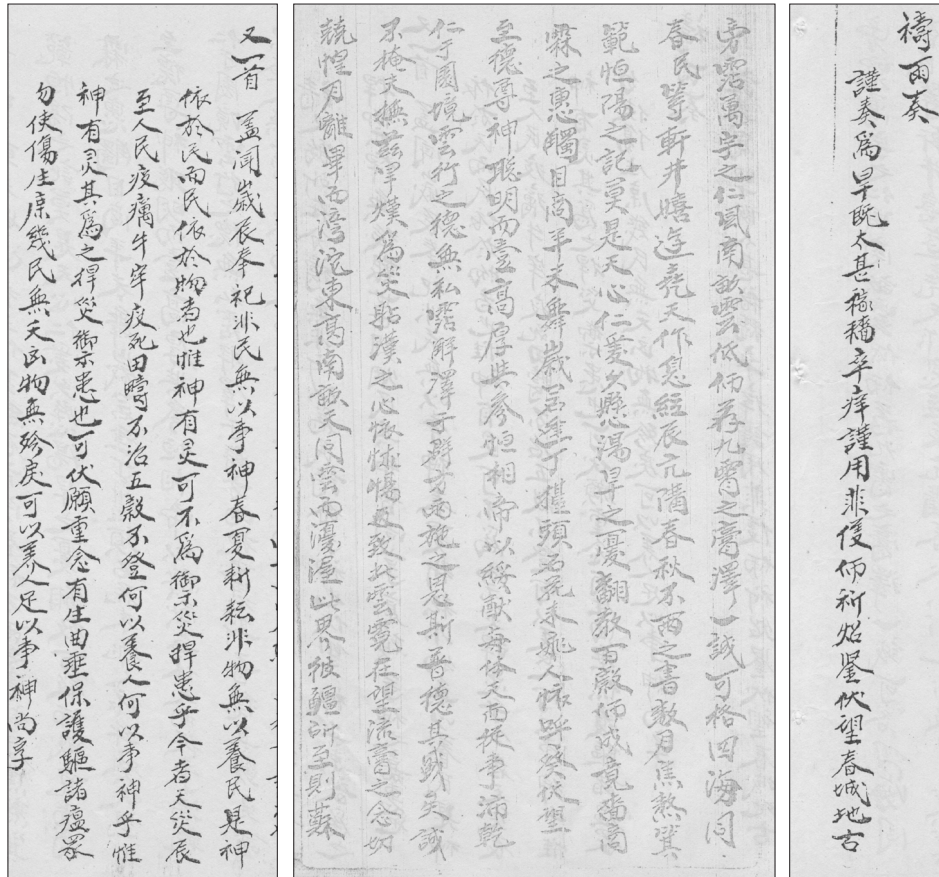 禱雨奏
謹奏爲旱眺太甚穡卒痒謹用菲儀仰祈炤鑒伏望春城地古
旁霑萬宇之仁風南畝雲低仰荐九霄之膏澤一誠可格四海同
春民等耕井嬉遊堯天作息經辰亢陽春秋不雨之書數月焦熬箕
範恒陽之記莫是天心仁愛久懸湯旱之憂翻教百穀仰成竟嗇商
霖之惠觸目商羊不舞歲若逢丁頭石燕未飛人怀呼癸伏望
至德尊神聰明而壹高厚共參恒相帝以綏猷每体天而從事沛乾
仁于圜境雲行之德無私霑解澤于群方雨施之恩斯普德其戢矣誠
不掩夫撫兹旱熯爲災之心怀惕亟致此雲霓在望流膏之念如
兢惶月離畢而滂沱東髙南畝天同雲而此界彼疆所至則蘇
又一首 盖聞歲辰奉祀非民無以事神春夏耕耘非物無以養民是神
依於民而民依於物者也惟神有灵可不爲御災捍患乎今者天災辰
至人民疫癘牛牢疫死田疇不治五穀不登何以養人何以事神乎惟
神有灵其爲之捍災御患也可伏願重念有生曲垂保護驅諸瘟眾
勿使傷生庶幾民無夭札物無殄戾可以養人足以事神尚享